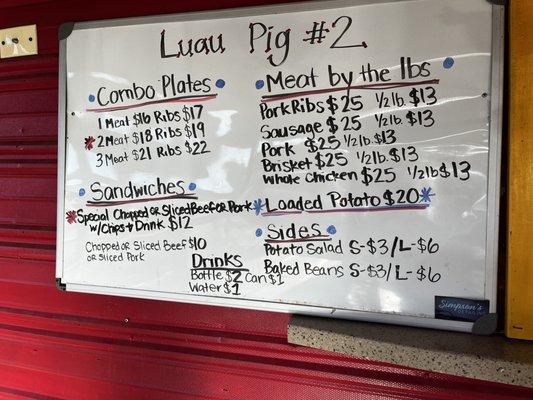 Luau Pig #2
Combo Plates
1 Meat $16 Ribs $17
*2 Meat $18 Ribs $19
3 Meat $21 Ribs $22
Sandwiches
*Special Chopped or Sliced Beef or Pork
w/Chips + Drink $12
Chopped or Sliced Beef $10
or Sliced Pork
Drinks
Bottle $2 Can $1
Water $1
Meat by the lbs
Pork Ribs $25 1/2 lb. $13
Sausage $25 1/2 lb. $13
Pork $25 1/2 lb. $13
Brisket $25 1/2 lb. $13
Whole Chicken $25 1/2 lb $13
*Loaded Potato $20*
Sides
Potato Salad S-$3/L-$6
Baked Beans S-$3/L-$6
Simpson's